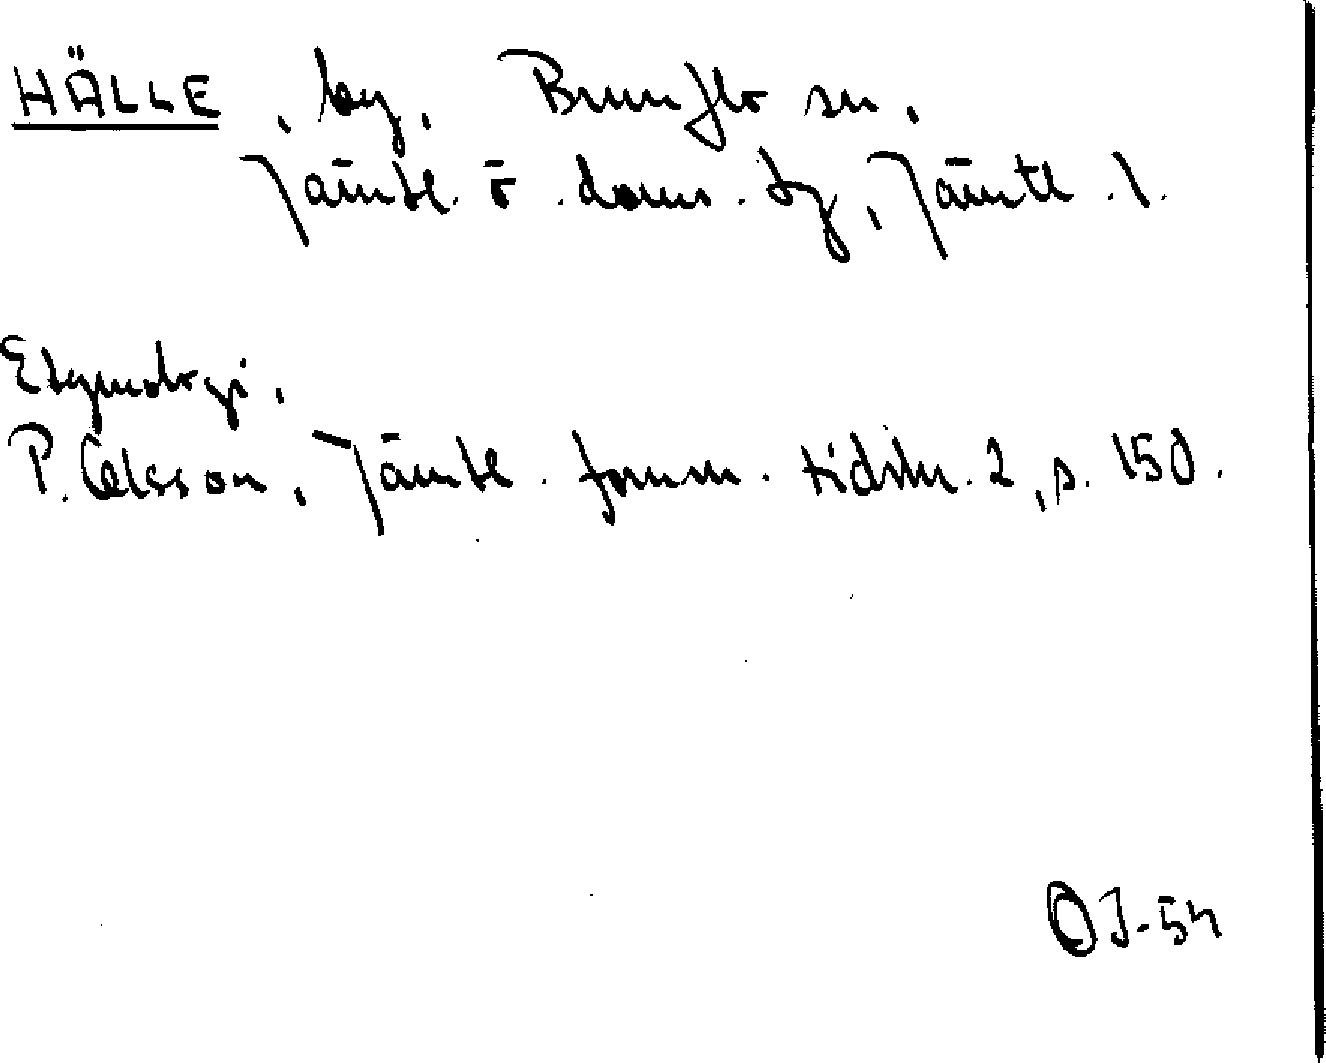 HÄLLE, by, Brunflo sn,
Jämtl. ö. doms. tg, Jämtl. l.
Etymologi,
P. Olsson, Jämtl. fornm. tidskr. 2, s. 150.
OJ-54